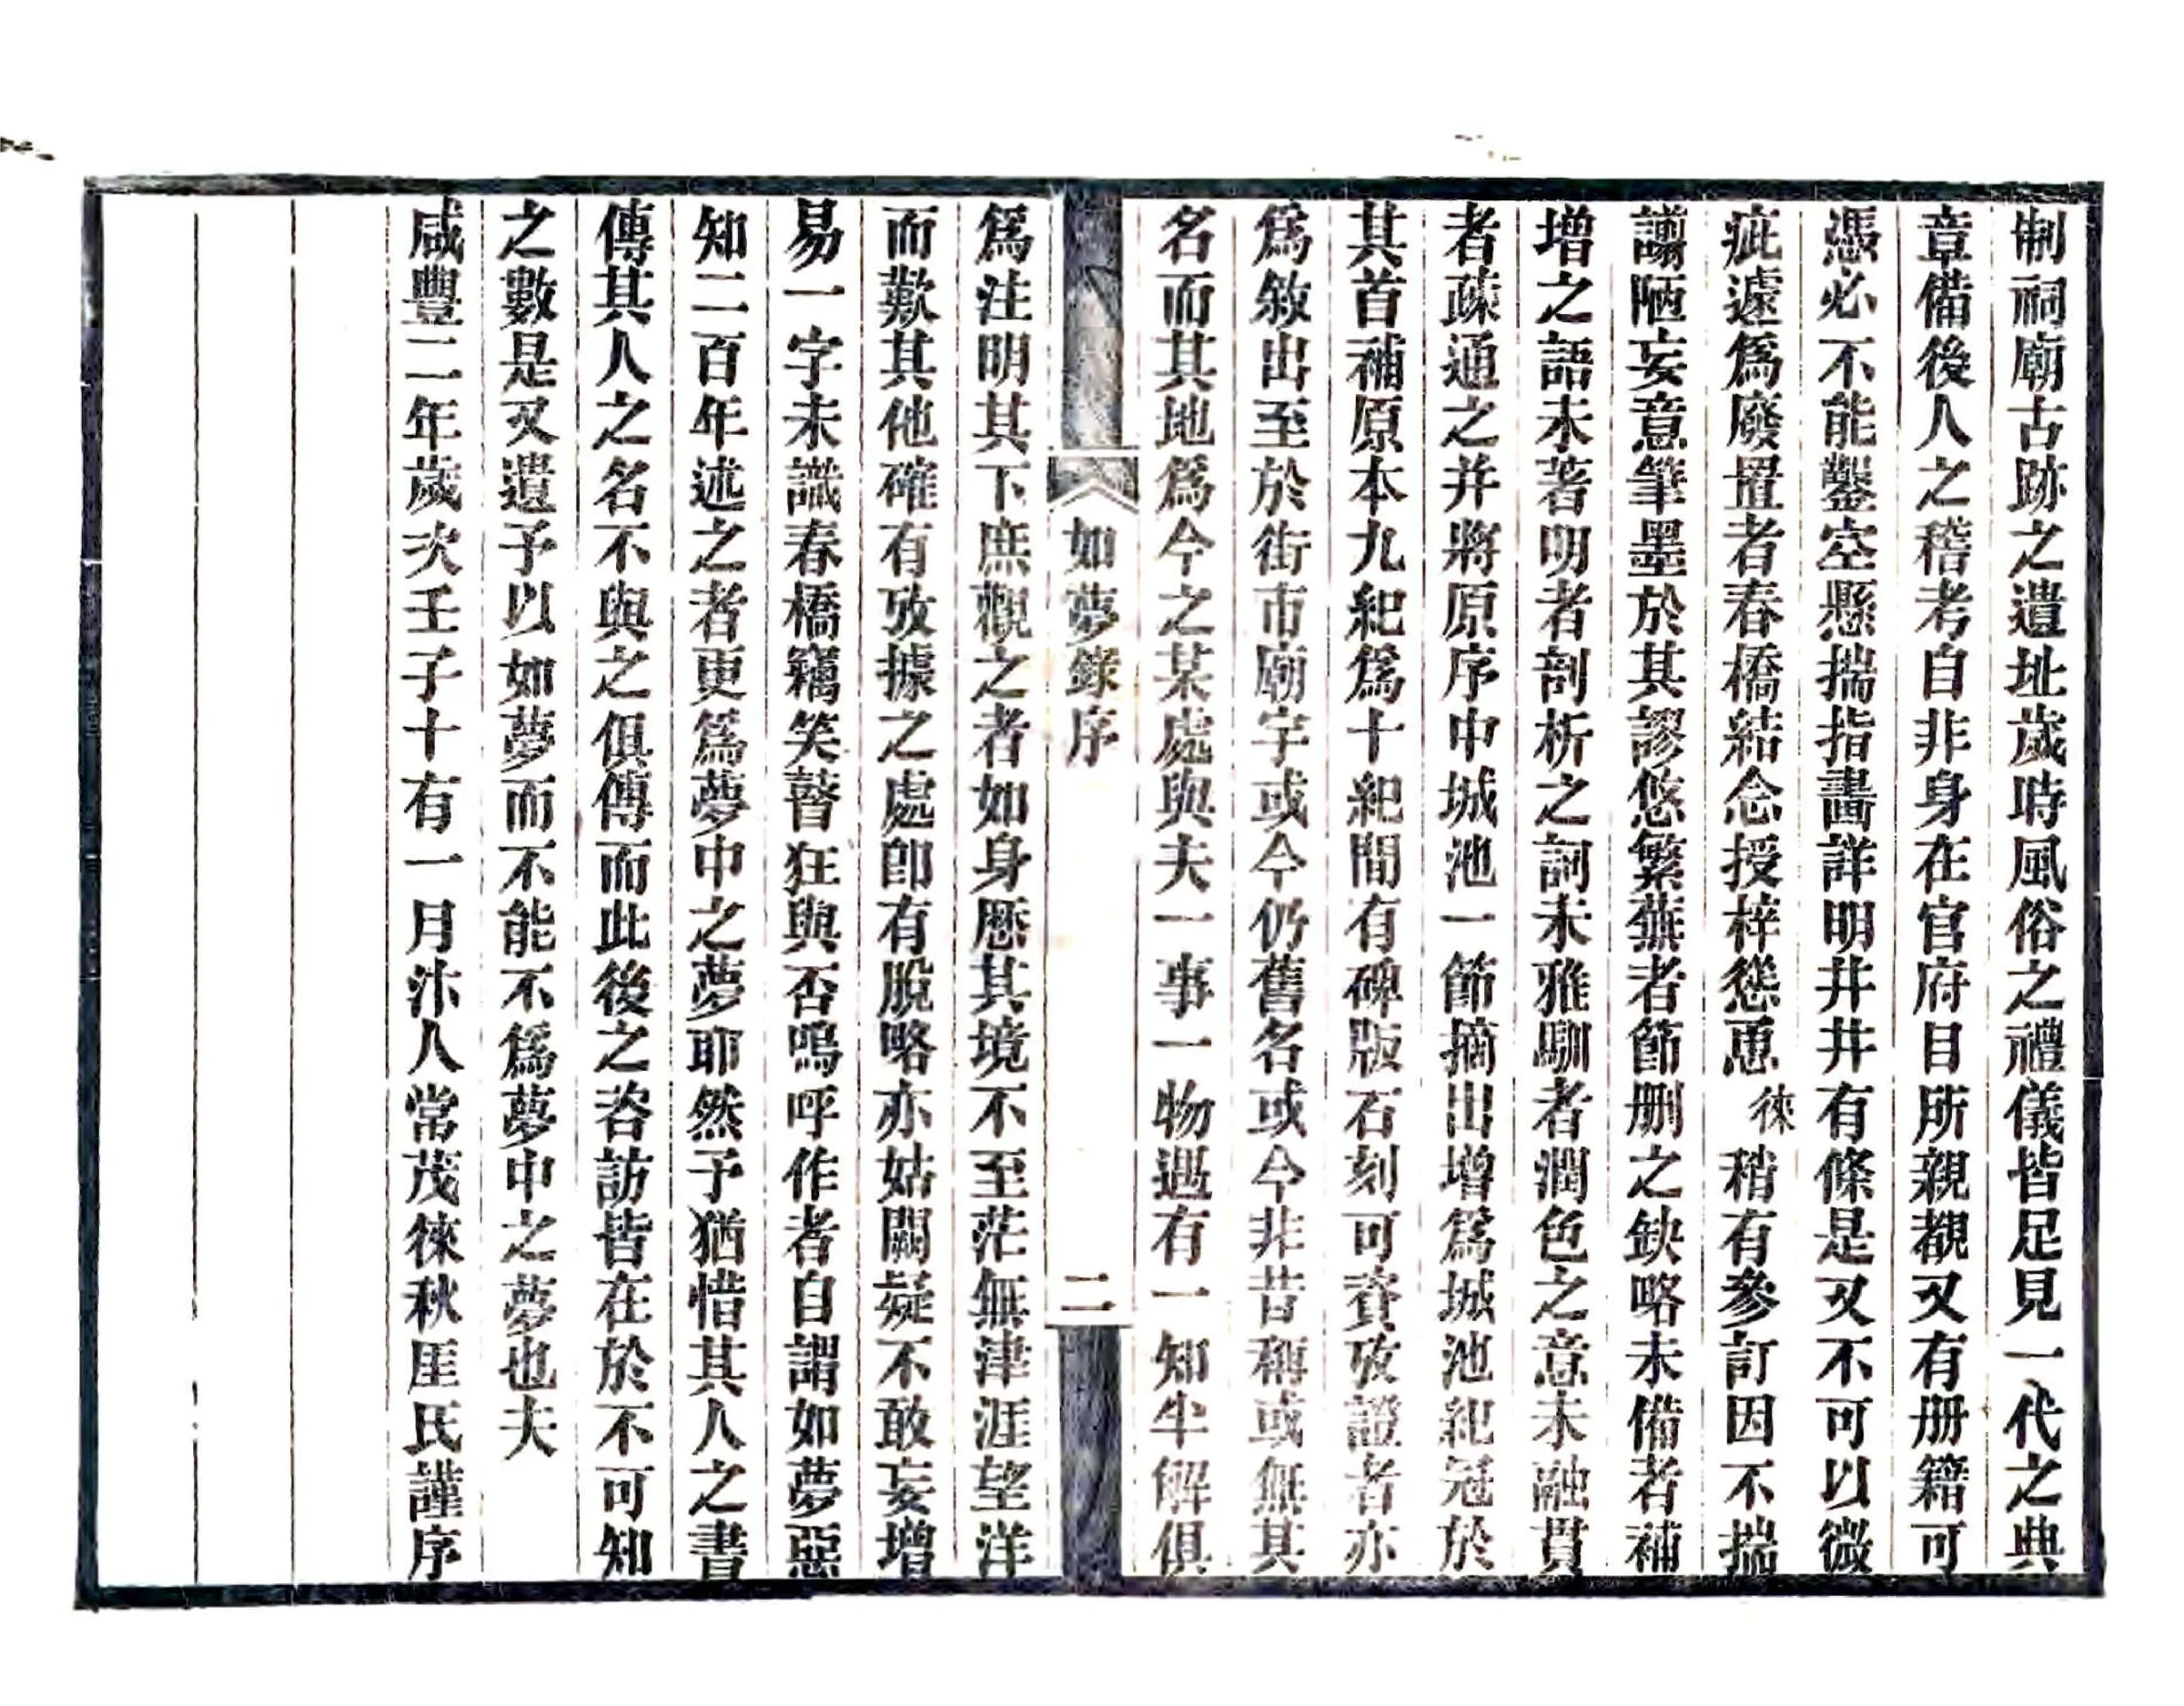 制祠廟古跡之遺址歲時風俗之禮儀皆足見一代之典
章備後人之稽考自非身在官府目所親覩又有册籍可
憑必不能鑿空懸揣指畵詳明井井有條是又不可以微
疵遽爲廢置者春橋結念授梓慫恿徠稍有參訂因不揣
譾陋妄意筆墨於其謬悠繁蕪者節删之缺略未備者補
增之語未著明者剖析之詞未雅馴者潤色之意未融貫
者疎通之并將原序中城池一節摘出增爲城池紀冠於
其首補原本九紀爲十紀間有碑版石刻可資攷證者亦
爲敘出至於街市廟宇或今仍舊名或今非昔稱或無其
名而其地爲今之某處與夫一事一物遇有一知半解俱
如夢錄序
二
爲注明其下庶觀之者如身歷其境不至茫無津涯望洋
而歎其他確有攷據之處卽有脫略亦姑闕疑不敢妄增
易一字未識春橋竊笑瞽狂與否嗚呼作者自謂如夢惡
知二百年述之者更爲夢中之夢耶然予猶惜其人之書
傳其人之名不與之俱傳而此後之咨訪皆在於不可知
之數是又遺予以如夢而不能不爲夢中之夢也夫
咸豐二年歲次壬子十有一月汴人常茂徠秋厓氏謹序